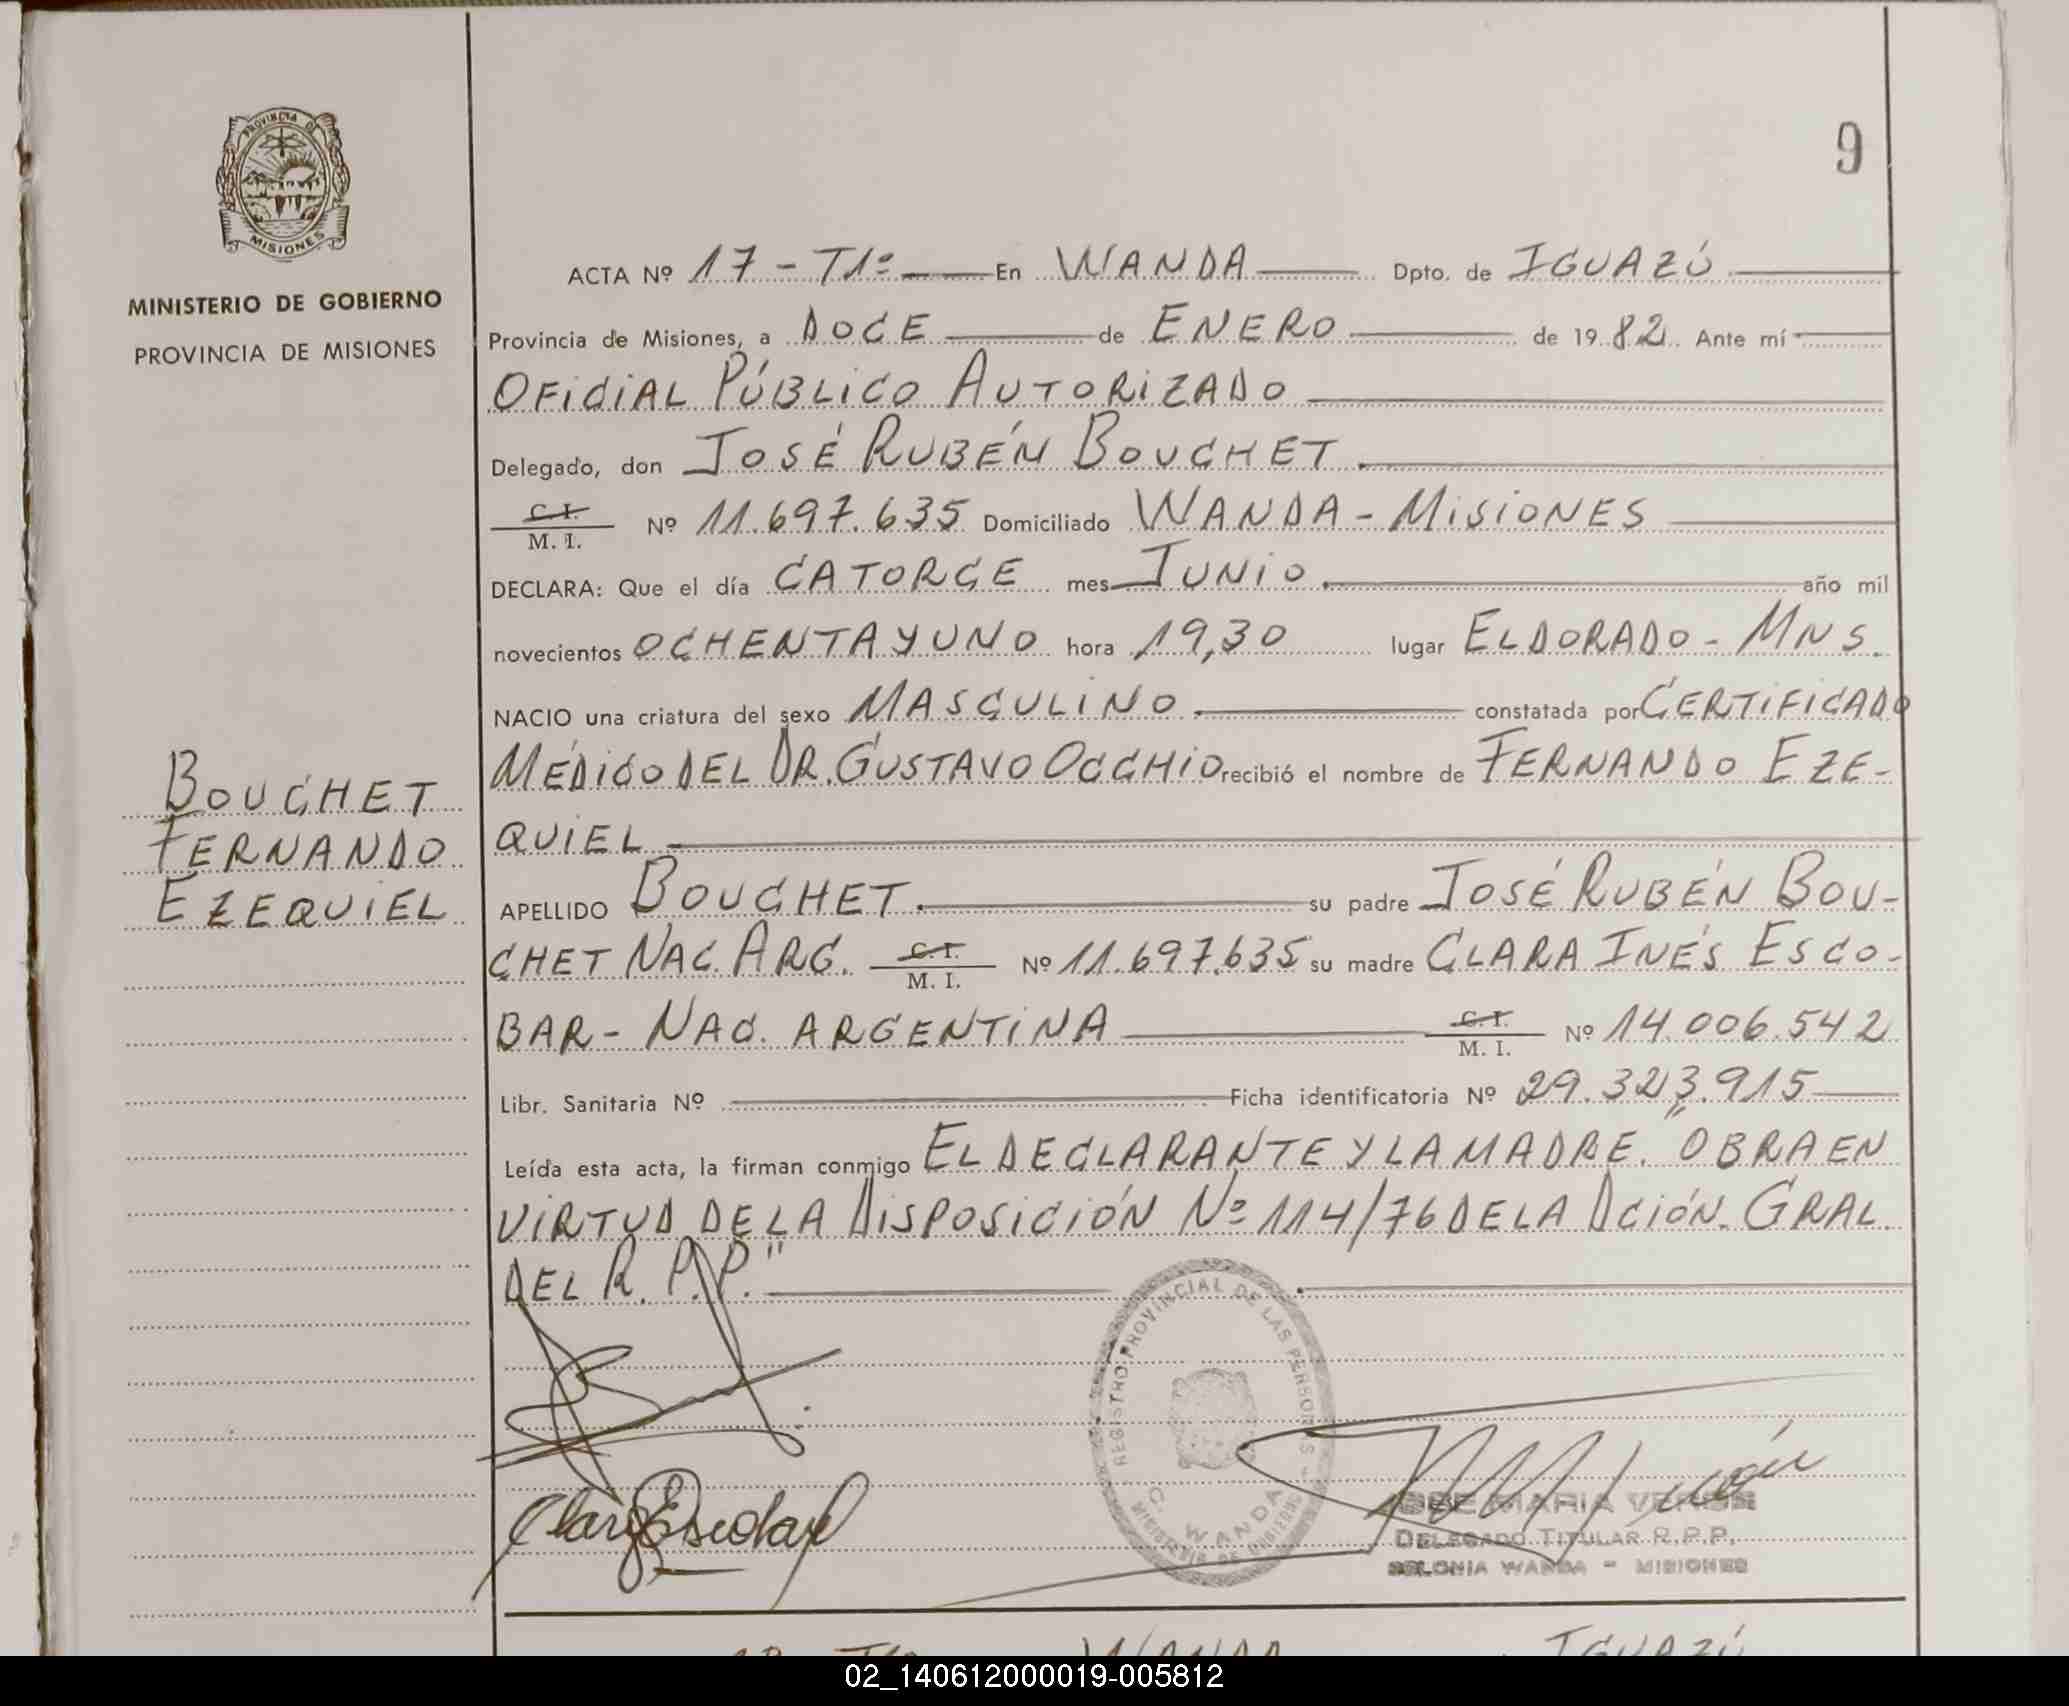 9
PROVINCIA DE
MISIONES
MINISTERIO DE GOBIERNO
PROVINCIA DE MISIONES
ACTA Nº 17 - T1º En WANDA Dpto. de IGUAZÚ
Provincia de Misiones, a DOCE de ENERO de 1982. Ante mí
OFICIAL PÚBLICO AUTORIZADO
Delegado, don JOSÉ RUBÉN BOUCHET.
C. I.
M. I. Nº 11.697.635 Domiciliado WANDA - MISIONES
DECLARA: Que el día CATORCE mes JUNIO. año mil
novecientos OCHENTA Y UNO hora 19,30 lugar ELDORADO - MNS.
NACIO una criatura del sexo MASCULINO. constatada por CERTIFICADO
MÉDICO DEL DR. GUSTAVO OCCHIO recibió el nombre de FERNANDO EZE-
QUIEL
BOUCHET
FERNANDO
EZEQUIEL
APELLIDO BOUCHET. su padre JOSÉ RUBÉN BOU-
CHET NAC. ARG. C. I.
M. I. Nº 11.697.635 su madre CLARA INÉS ESCO-
BAR - NAC. ARGENTINA C. I.
M. I. Nº 14.006.542
Libr. Sanitaria Nº Ficha identificatoria Nº 29.323.915
Leída esta acta, la firman conmigo EL DECLARANTE Y LA MADRE. "OBRA EN
VIRTUD DE LA DISPOSICIÓN Nº 114/76 DE LA DCIÓN. GRAL
DEL R. P. P."
REGISTRO PROVINCIAL DE LAS PERSONAS
C. WANDA
MINISTERIO DE GOBIERNO
Clara Escobar
JOSE MARIA
DELEGADO TITULAR R.P.P.
COLONIA WANDA - MISIONES
WANDA IGUAZÚ
02_140612000019-005812